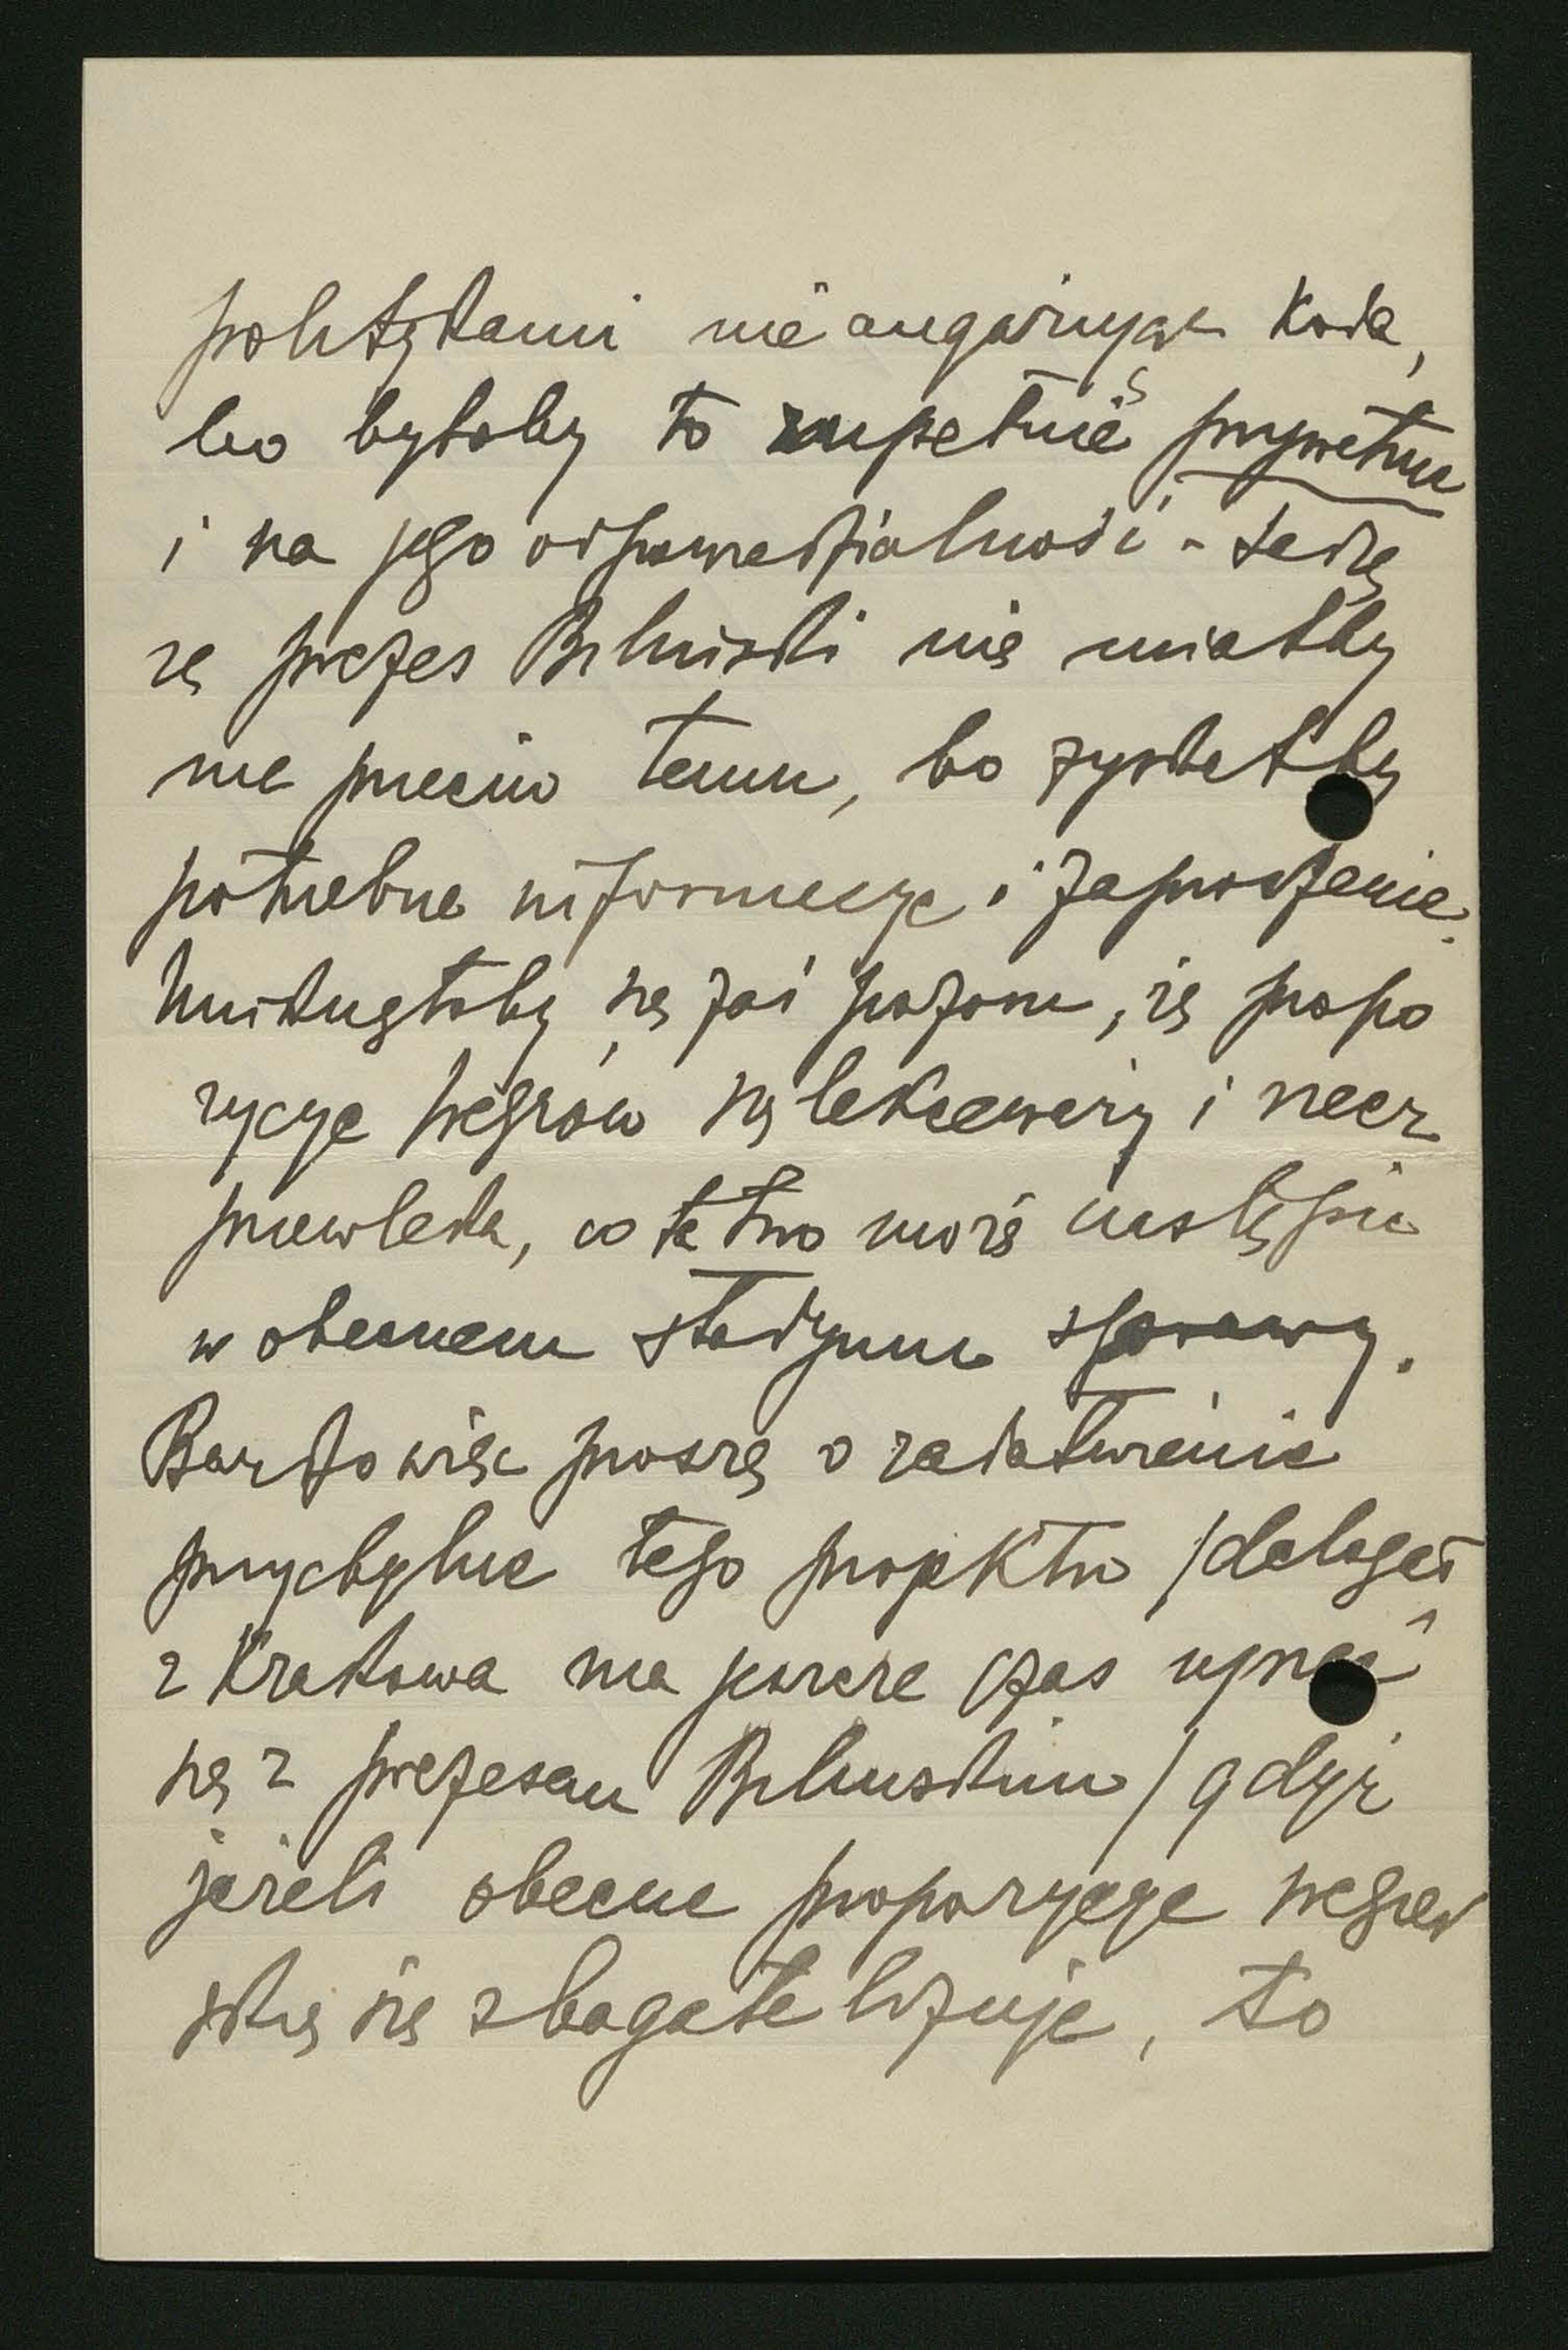 politykami nie angażując Koła,
bo byłoby to zupełnie prywatne
i na jego odpowiedzialność - sądzę
że prezes Biliński nie miałby
nic przeciw temu, bo zyskałby
potrzebne informacye i zaproszenie.
Uniknęłoby się zaś pozoru, że propo
zycye węgrów się lekceważy i rzecz
przewleka, co łatwo może nastąpić
w obecnem stadyum sprawy.
Bardzo więc proszę o załatwienie
przychylne tego projektu /delegat
z Krakowa ma jeszcze czas ujrzeć
się z prezesem Bilińskim/ gdyż
jeżeli obecne propozycye węgier
skie się zbagatelizuje, to